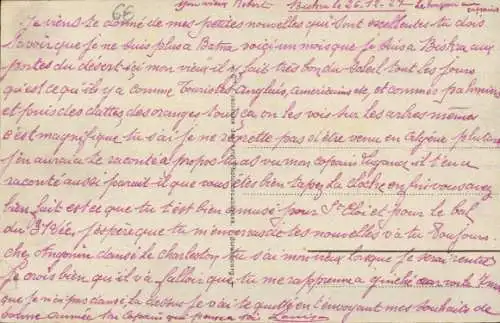 66
mon vieux Robert Biskra le 26-12-27
Je viens te donné de mes petites nouvelles qui sont excellentes tu dois
savoir que je ne suis plus a Batna voici un mois que je suis a Biskra aux
portes du désert ici mon vieux il y fait très bon du soleil tout les jours
qu'est ce qu'ils y a comme touristes Anglais, américains etc, et comme palmiers
et puis des dattes des oranges tout ça on les vois sur les arbres mêmes
c'est magnifique tu sais je ne regrette pas d'être venu en Algérie plus tard
j'en aurai a te raconté a propos tu as vu mon copain il t'en a
raconté aussi parait-il que vous êtes bien tapez la cloche enfin vous avez
bien fait est ce que tu t'est bien amusé pour St Eloi et pour le bal
du j'espère que tu m'enverras des nouvelles va tu toujours
chez dansé le charleston tu sais mon vieux lorsque je serai rentré
je crois bien qu'il va falloir que tu me rapprenne a
que je n'ai pas dansé, la dessus je vais te quitté en t'envoyant mes souhaits de
bonne année ton copain qui pense a toi Louis